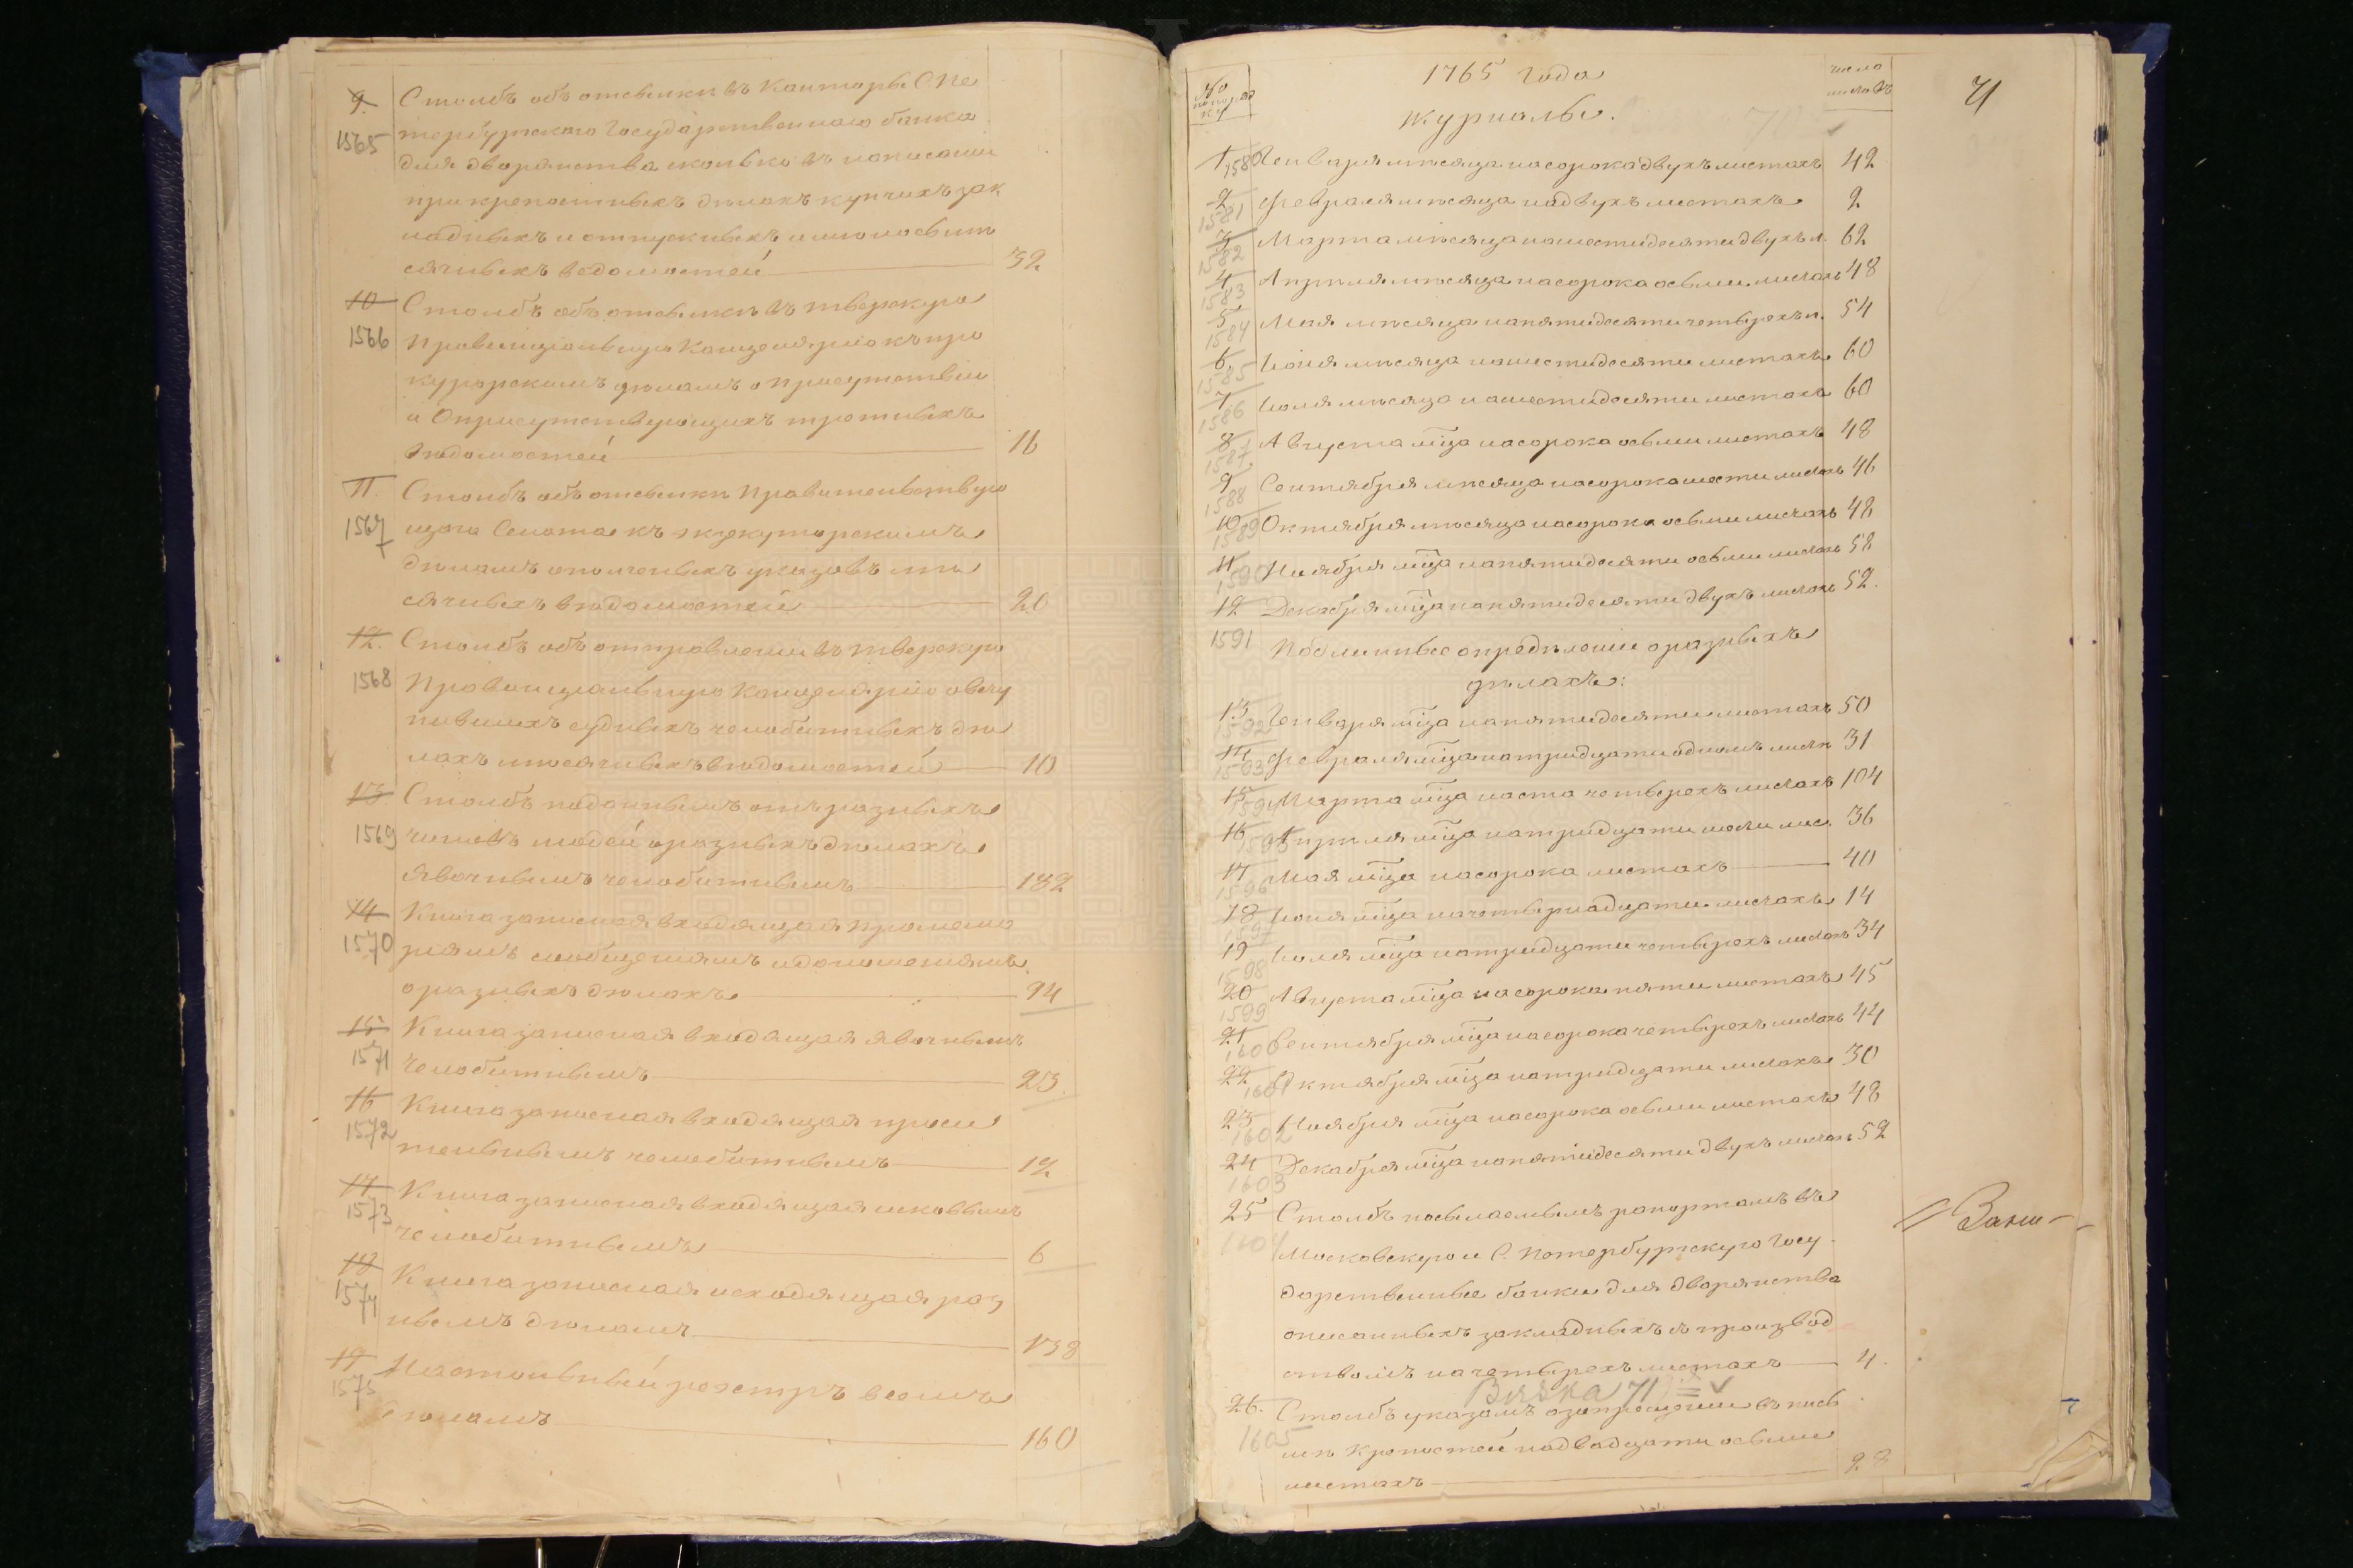 9. Столбъ объ отсылки въ Канторы С. Пе
1565 тербургскаго Государственнаго банка
для дворянства сколько въ написании
при крепостныхъ делахъ купчихъ зак
ладныхъ и отпускныхъ
сячныхъ ведомостей 32
10 Столбъ объ отсылки въ тверскую
1566 Провинциальную Канцелярию къ про
курорскимъ дѣламъ о присутствии
и о присутствующихъ третныхъ
вѣдомостей 16
11. Столбъ объ отсылки Правительствую
1567 щаго Сената къ экзекуторскимъ
дѣламъ ополченыхъ указовъ мѣ
сячныхъ вѣдомостей 20
12. Столбъ объ отправлении въ тверскую
1568 Провинциальную Канцелярию о всту
пившихъ судныхъ челобитныхъ дѣ
лахъ мѣсячныхъ вѣдомостей 10
13. Столбъ поданнымъ отъ разныхъ
1569 чиновъ людей о разныхъ дѣлахъ
явочнымъ челобитнымъ 182
14 Книга записная входящая промемо
1570 риямъ сообщениямъ и доношениямъ
о разныхъ дѣлахъ 94
15 Книга записная входящая явочнымъ
1571 челобитнымъ 23.
16 Книга записная входящая проси
1572 тельнымъ челобитнымъ 12
17 Книга записная входящая исковымъ
1573 челобитнымъ 6
18 Книга записная исходящая раз
1574 нымъ дѣламъ 138
19 Настольный реэстръ всемъ
1575 дѣламъ 160
№ по поряд ку
1765 Года
число листовъ
71
журналы.
1 1580 Генваря мѣсяца на сорока двухъ листахъ 42
2 1581 Февраля мѣсяца на двухъ листахъ 2
3 1582 Марта мѣсяца на шестидесяти двухъ л. 62
4 1583 Апрѣля мѣсяца на сорока осьми листахъ 48
5 1584 Мая мѣсяца на пятидесяти четырехъ л. 54
6 1585 Июня мѣсяца на шестидесяти листахъ 60
7 1586 Июля мѣсяца на шестидесяти листахъ 60
8 1587 Августа мѣца на сорока осьми листахъ 48
9 1588 Сентября мѣсяца на сорока шести листахъ 46
10 1589 Октября мѣсяца на сорока осьми листахъ 48
11 1590 Ноября мѣца на пятидесяти осьми листахъ 58
12 Декабря мѣца на пятидесяти двухъ листахъ 52.
1591 Подлинные определении о разныхъ
дѣлахъ:
13 1592 Генваря мѣца на пятидесяти листахъ 50
14 1593 Февраля мѣца на тридцати одномъ листѣ 31
15 1594 Марта мѣца на ста четырехъ листахъ 104
16 1595 Апрѣля мѣца на тридцати шести лис. 36
17 1596 Мая мѣца на сорока листахъ 40
18 1597 Июня мѣца на четырнадцати листахъ 14
19 1598 Июля мѣца на тридцати четырехъ листахъ 34
20 1599 Августа мѣца на сорока пяти листахъ 45
21 1600 Сентября мѣца на сорока четырехъ листахъ 44
22 1601 Октября мѣца на тридцати листахъ 30
23 1602 Ноября мѣца на сорока осьми листахъ 48
24 1603 Декабря мѣца на пятидесяти двухъ листахъ 52
25 Столбъ посылаемымъ рапортамъ въ
1604 Московскую и С. Петербургскую Госу-
дарственные банки для дворянства
описанныхъ закладныхъ и производ
ствомъ на четырехъ листахъ 4.
Вязка 71
26. Столбъ указамъ о запрещении въ пись
1605 мѣ Крепостей на двадцати осьми
листахъ 28